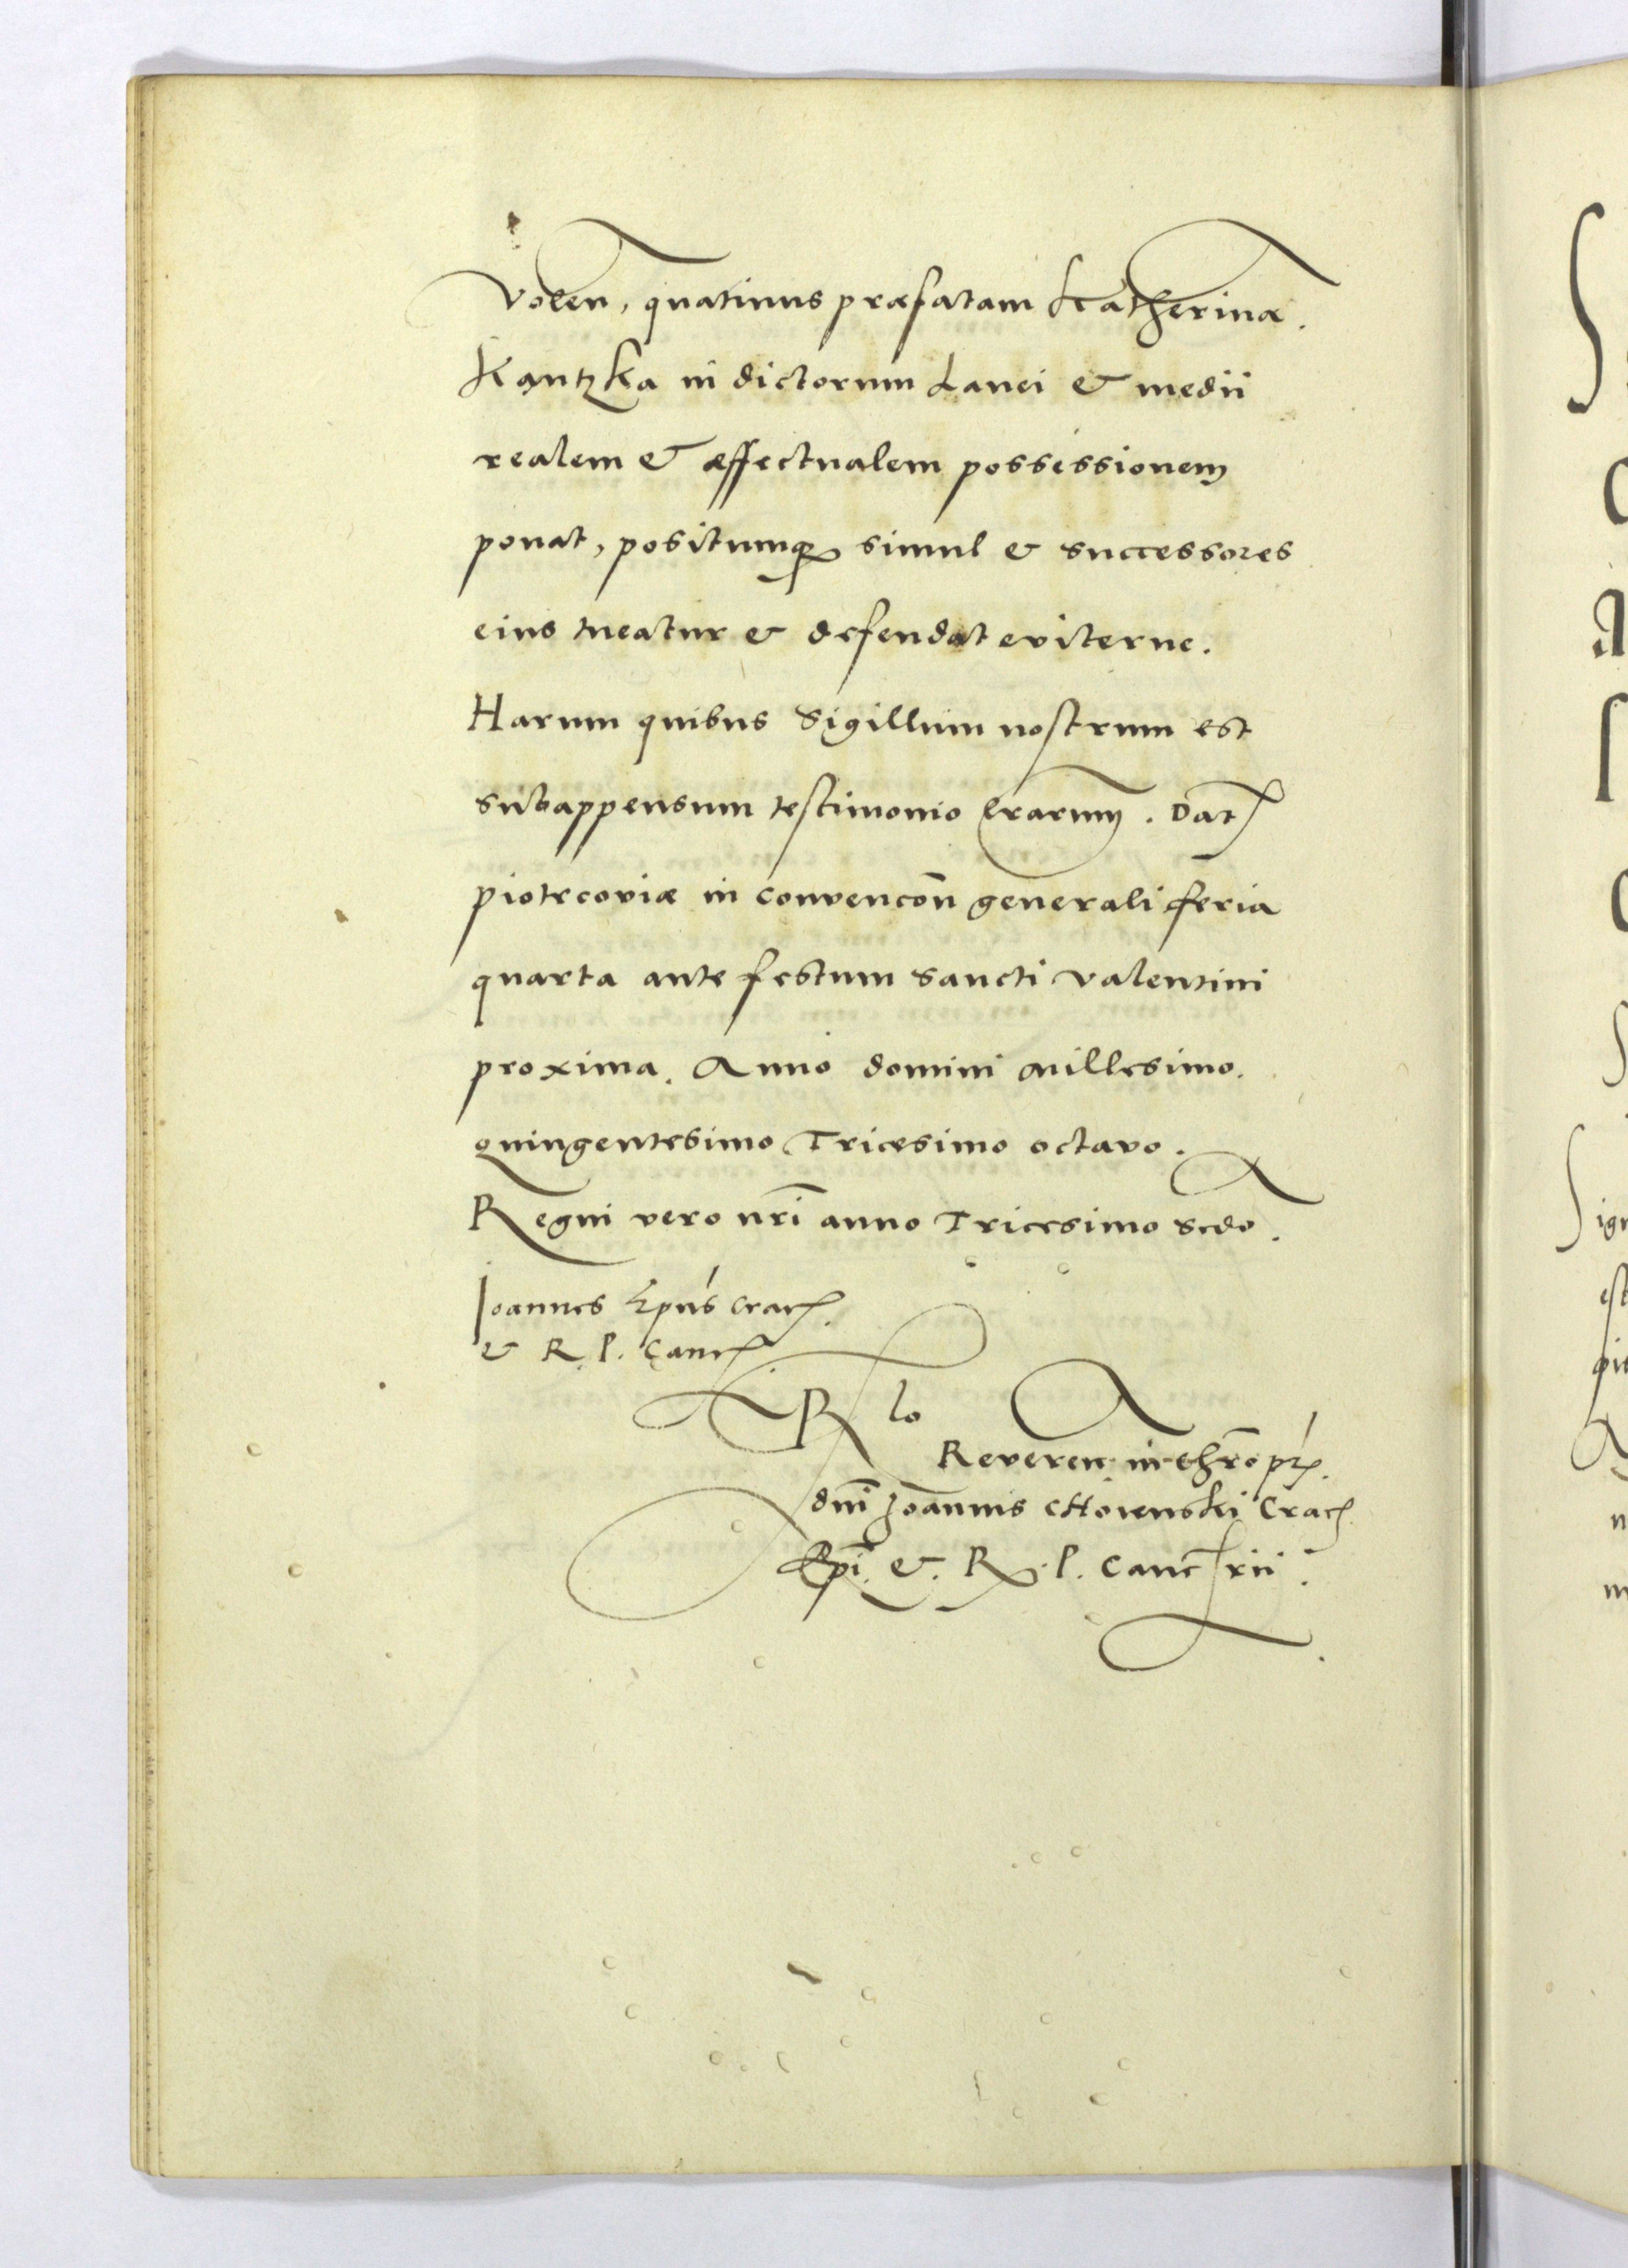 Volen, quatinus præfatam Katherina.
Kantzka in dictorum Lanei & medii
realem & æffectualem possessionem
ponat, positumq simul & successores
eius tueatur & defendat eviterne.
Harum quibus Sigillum nostrum est
subappensum testimonio lrarum. Dat
piotrcoviæ in convencōn generali feria
quarta ante festum sancti valentini
proxima. Anno domini millesimo.
quingentesimo Tricesimo octavo.
Regni vero nrī anno Tricesimo scdo.
Joannes Epus crac.
& R. P. Canc.
R lo
Reveren in chro pr.
dnī Joannis CHoienski Crac
Epi. & R. P. Canc rii.